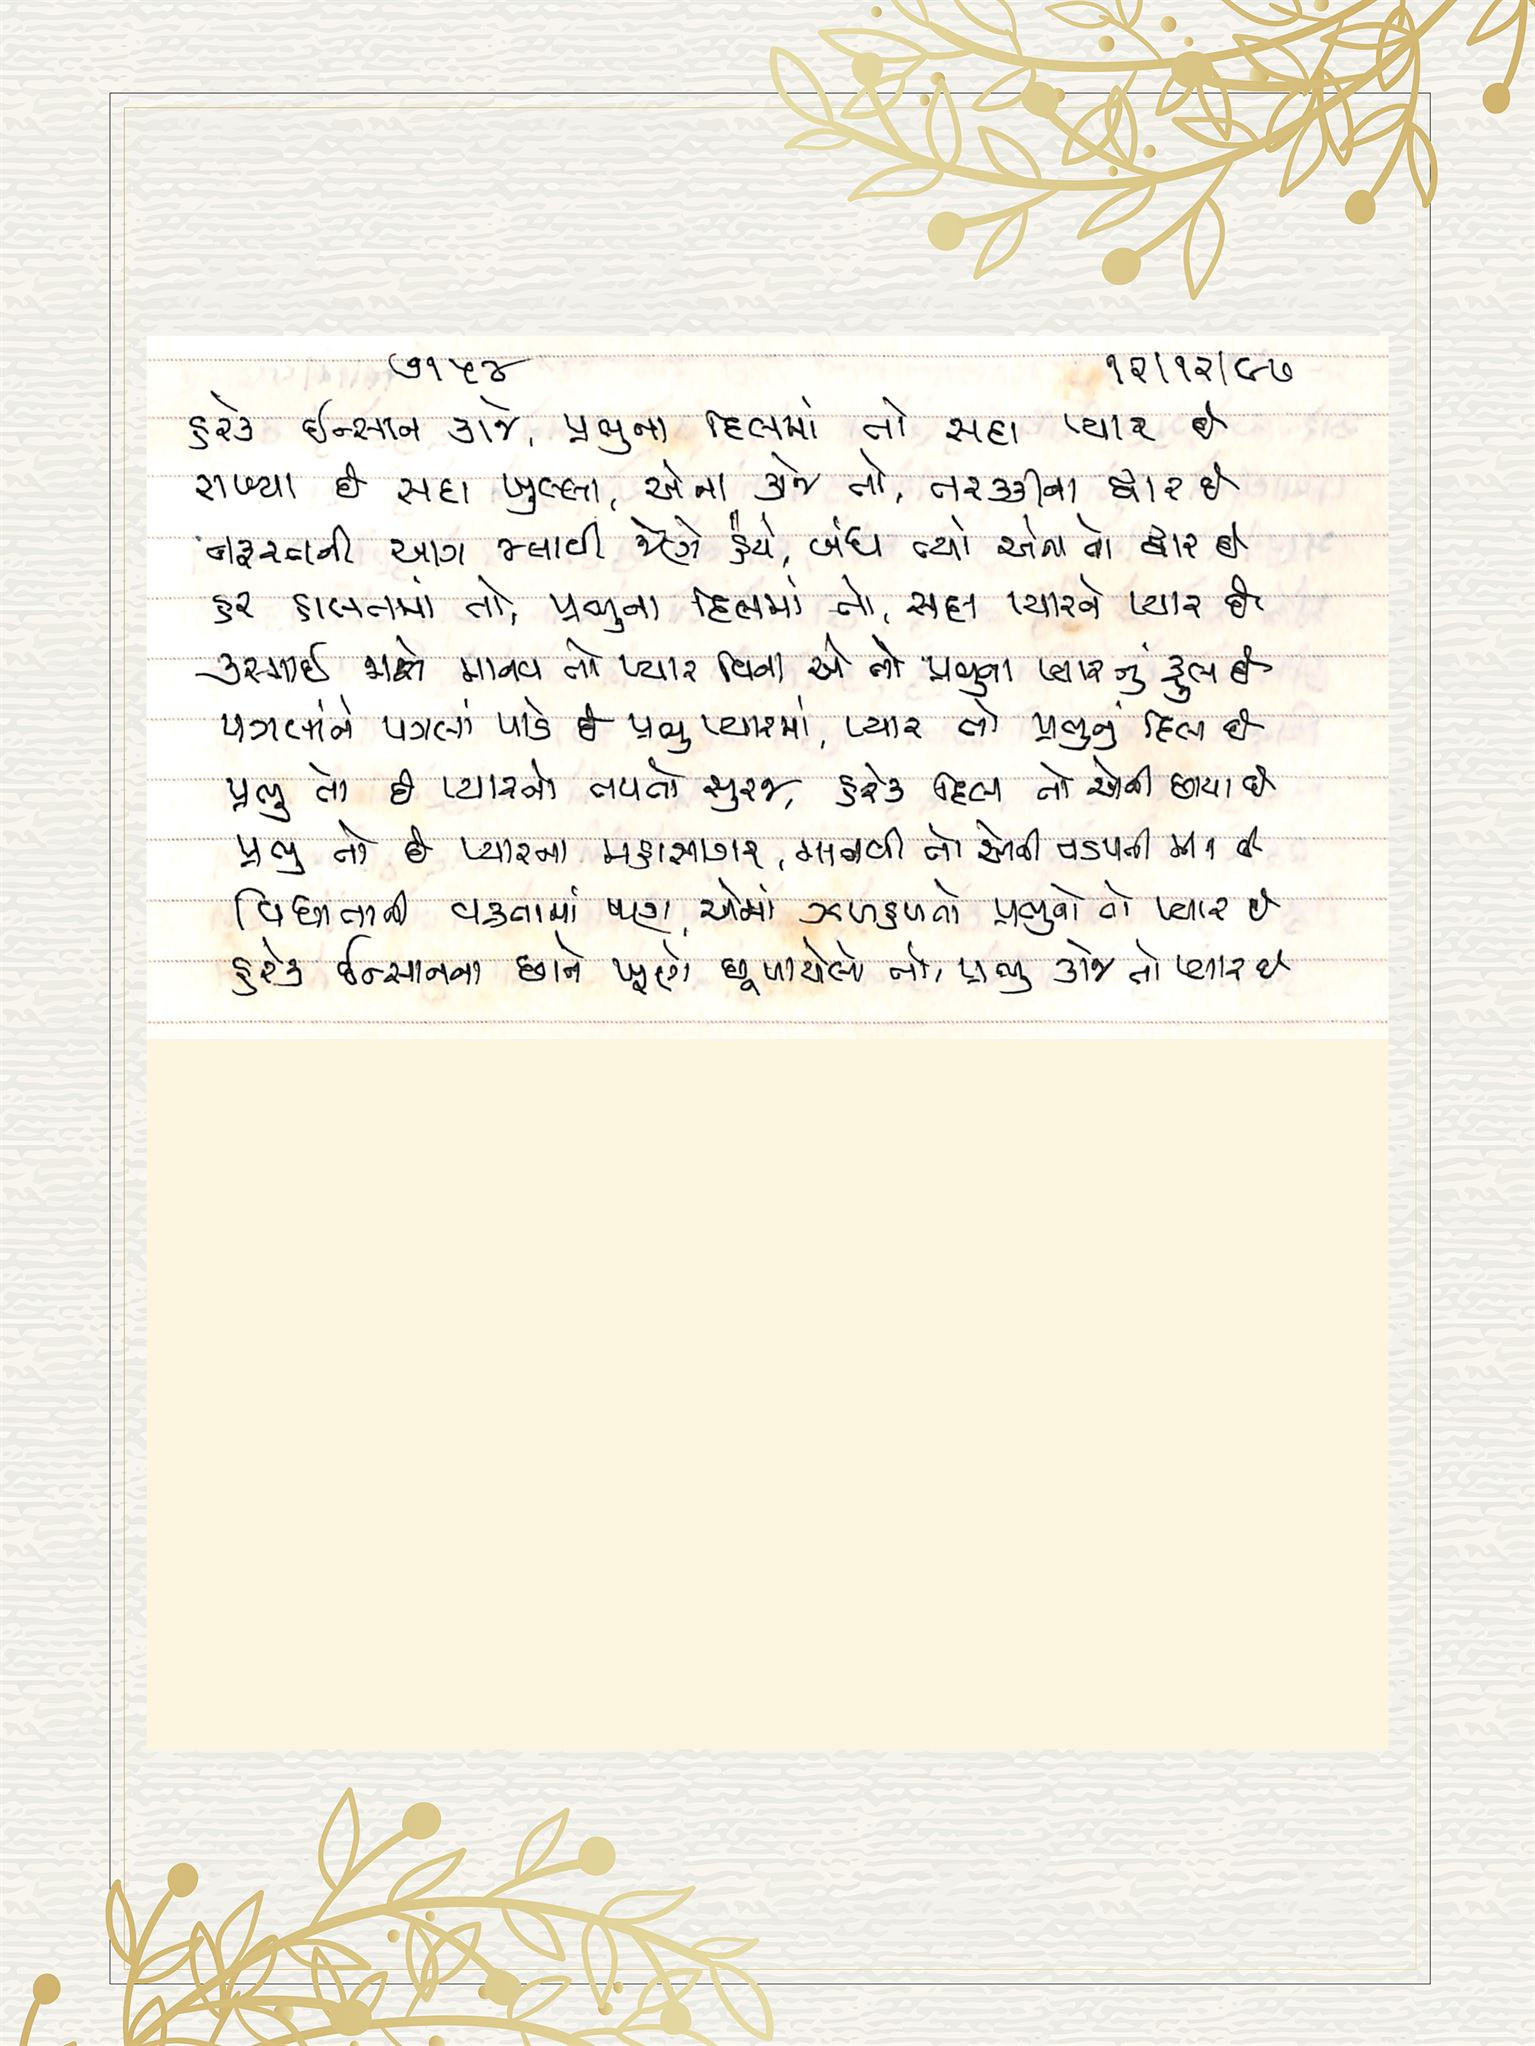 ૭૧૫૪ ૧૨/૧૨/૯૭
હરેક ઈન્સાન કાજે, પ્રભુના દિલમાં તો સદા પ્યાર છે
રાખ્યા છે સદા ખુલ્લા, એના કાજે તો, તરક્કીના દ્વાર છે
નફરતની આગ જલાવી જેણે હૈયે, બંધ ત્યાં એના તો દ્વાર છે
હર હાલતમાં તો, પ્રભુના દિલમાં તો, સદા પ્યારને પ્યાર છે
કરમાઈ જાશે માનવ તો પ્યાર વિના એ તો પ્રભુના પ્યારનું ફુલ છે
પગલાંને પગલાં પાડે છે પ્રભુ પ્યારમાં, પ્યાર તો પ્રભુનું દિલ છે
પ્રભુ તો છે પ્યારનો તપતો સુરજ, હરેક દિલ તો એની છાયા છે
પ્રભુ તો છે પ્યારના મહાસાગર, માનવી તો એની તડપતી મીન છે
વિધાતાની વક્રતામાં પણ, એમાં ઝળહળતો પ્રભુનો તો પ્યાર છે
હરેક ઈન્સાનના છાને ખૂણે છૂપાયેલો તો, પ્રભુ કાજે તો પ્યાર છે